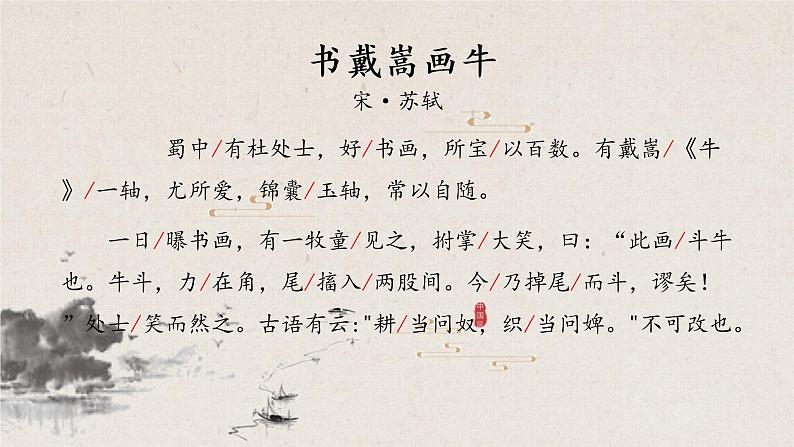 书戴嵩画牛
宋·苏轼
蜀中/有杜处士，好/书画，所宝/以百数。有戴嵩/《牛
》/一轴，尤所爱，锦囊/玉轴，常以自随。
一日/曝书画，有一牧童/见之，拊掌/大笑，曰：“此画/斗牛
也。牛斗，力/在角，尾/搐入/两股间。今/乃掉尾/而斗，谬矣！
”处士/笑而然之。古语有云:"耕/当问奴，织/当问婢。"不可改也。